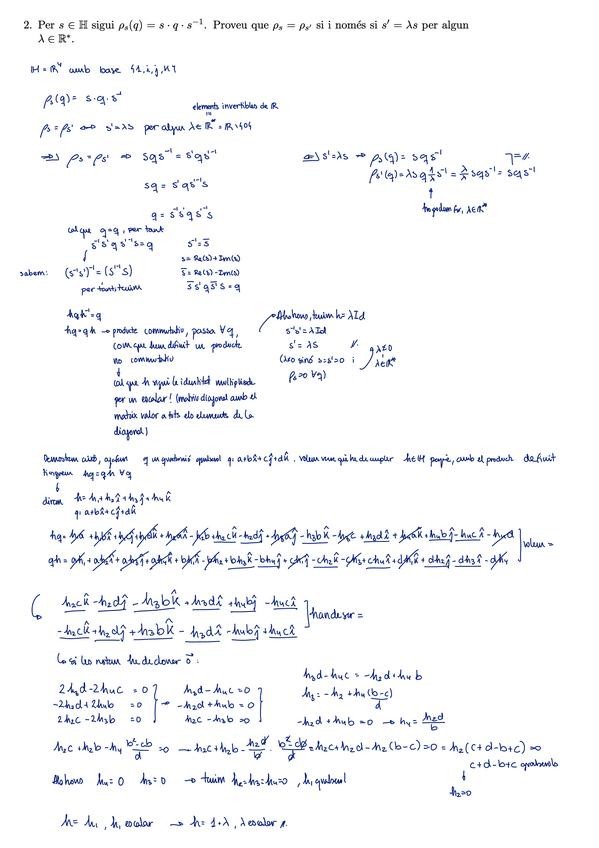 2. Per s ∈ ℍ sigui ρₛ(q) = s · q · s⁻¹. Proveu que ρₛ = ρₛ′ si i només si s′ = λs per algun
λ ∈ ℝ*.
ℍ = ℝ⁴ amb base {1,i,j,k}
ρₛ(q) = s·q·s⁻¹
elements invertibles de ℝ
ρₛ = ρₛ′ ⟺ s′ = λs per algun λ ∈ ℝ* = ℝ\{0}
⇒) ρₛ = ρₛ′ ⇒ sqs⁻¹ = s′qs′⁻¹
sq = s′qs′⁻¹s
q = s⁻¹s′qs′⁻¹s
cal que q=q, per tant
s⁻¹s′qs′⁻¹s = q
s⁻¹ = s̄
s = Re(s)+Im(s)
s̄ = Re(s)-Im(s)
s̄s′qs̄′s = q
sabem: (s⁻¹s′)⁻¹ = (s′⁻¹s)
per tant, tenim
⇐) s′=λs → ρₛ(q) = sqs⁻¹
ρₛ′(q) = λsq 1/λ s⁻¹ = λ/λ sqs⁻¹ = sqs⁻¹
ho podem fer, λ∈ℝ*
hqh⁻¹ = q
hq = qh → producte commutatiu, passa ∀q,
com que hem definit un producte
no commutatiu
cal que h sigui la identitat multiplicada
per un escalar! (matriu diagonal amb el
mateix valor a tots els elements de la
diagonal)
Aleshores, tenim h = λId
s⁻¹s′ = λId
s′ = λs
(λ≠0 sinó s=s′=0 i
ρₛ=0 ∀q)
λ≠0
λ∈ℝ*
Demostem això, agafem q un quaternió qualsevol q: a+bî+cĵ+dk̂. Volem veure què ha de complir h∈ℍ perquè, amb el producte definit
tinguem hq=qh ∀q
direm h = h₁+h₂î+h₃ĵ+h₄k̂
q: a+bî+cĵ+dk̂
hq = h₁a + h₁bî + h₁cĵ + h₁dk̂ + h₂aî - h₂b + h₂ck̂ - h₂dĵ + h₃aĵ - h₃bk̂ - h₃c + h₃dî + h₄ak̂ + h₄bĵ - h₄cî - h₄d
qh = ah₁ + ah₂î + ah₃ĵ + ah₄k̂ + bh₁î - bh₂ + bh₃k̂ - bh₄ĵ + ch₁ĵ - ch₂k̂ - ch₃ + ch₄î + dh₁k̂ + dh₂ĵ - dh₃î - dh₄
volem =
h₂ck̂ - h₂dĵ - h₃bk̂ + h₃dî + h₄bĵ - h₄cî
-h₂ck̂ + h₂dĵ + h₃bk̂ - h₃dî - h₄bĵ + h₄cî
han de ser =
si les restem ha de donar 0⃗:
2h₃d - 2h₄c = 0
-2h₂d + 2h₄b = 0
2h₂c - 2h₃b = 0
h₃d - h₄c = 0
-h₂d + h₄b = 0
h₂c - h₃b = 0
h₃d - h₄c = -h₂d + h₄b
h₃ = -h₂ + h₄ (b-c)/d
-h₂d + h₄b = 0 → h₄ = h₂d/b
h₂c + h₂b - h₄ (b²-cb)/d = 0 → h₂c + h₂b - h₂d/b · (b²-cb)/d = h₂c + h₂d - h₂(b-c) = 0 = h₂(c+d-b+c) ⇒
c+d-b+c qualsevol
h₂=0
Aleshores h₄ = 0 h₃ = 0 → tenim h₂=h₃=h₄=0, h₁ qualsevol
h = h₁, h₁ escalar → h = 1·λ, λ escalar